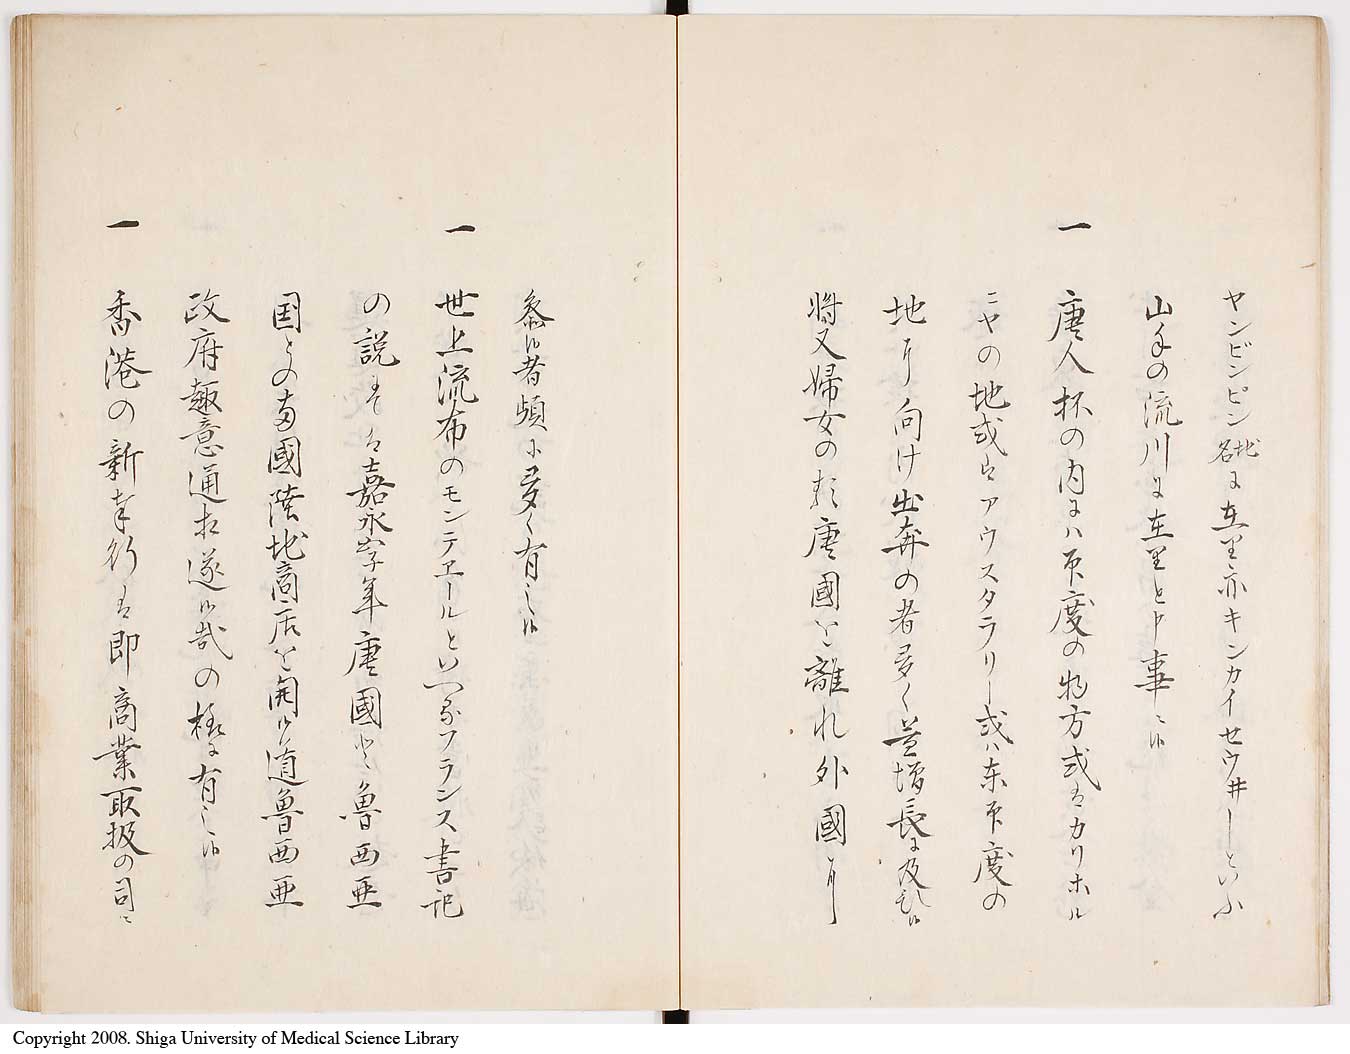 ヤンビンピン地名に在里亦キンカイセウ井ーといふ
山手の流川に在里と申事ニ候
一 唐人杯の内にハ印度の物方或はカリホル
ニヤの地或はアウスタラリー或ハ東印度の
地江向け出奔の者多く益増長に及ひ候
将又婦女の類唐國を離れ外國江
参候者頻に多く有之候
一 世上流布のモンテエールといへるフランス書記
の説にては嘉永字年唐國と魯西亜
国との両國陸地商店を開候道魯西亜
政府趣意通相遂候哉の様に有之候
一 香港の新奉行は即商業取扱の司ニ
Copyright 2008. Shiga University of Medical Science Library